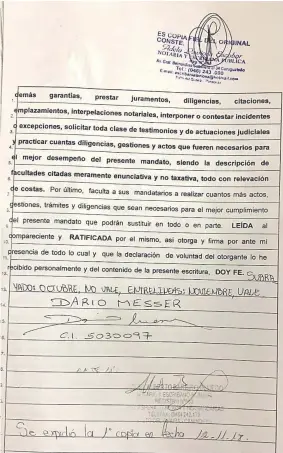 ES COPIA FIEL DEL ORIGINAL
CONSTE.
NOTARIA Y ESCRIBANA PÚBLICA
Tel.: (046) 243
demás garantías, prestar juramentos, diligencias, citaciones,
emplazamientos, interpelaciones notariales, interponer o contestar incidentes
o excepciones, solicitar toda clase de testimonios y de actuaciones judiciales
y practicar cuantas diligencias, gestiones y actos que fueren necesarios para
el mejor desempeño del presente mandato, siendo la descripción de
facultades citadas meramente enunciativa y no taxativa, todo con relevación
de costas. Por último, faculta a sus mandatarios a realizar cuantos más actos,
gestiones, trámites y diligencias que sean necesarios para el mejor cumplimiento
del presente mandato que podrán sustituir en todo o en parte. LEÍDA al
compareciente y RATIFICADA por el mismo, así otorga y firma por ante mí
presencia de todo lo cual y que la declaración de voluntad del otorgante lo he
recibido personalmente y del contenido de la presente escritura, DOY FE. SUBRA
YADO: OCTUBRE, NO VALE, ENTRELINEAS: NOVIEMBRE, VALE
DARIO MESSER
C.I. 5030097
Se expidió la 1ª copia en fecha 12-11-17.